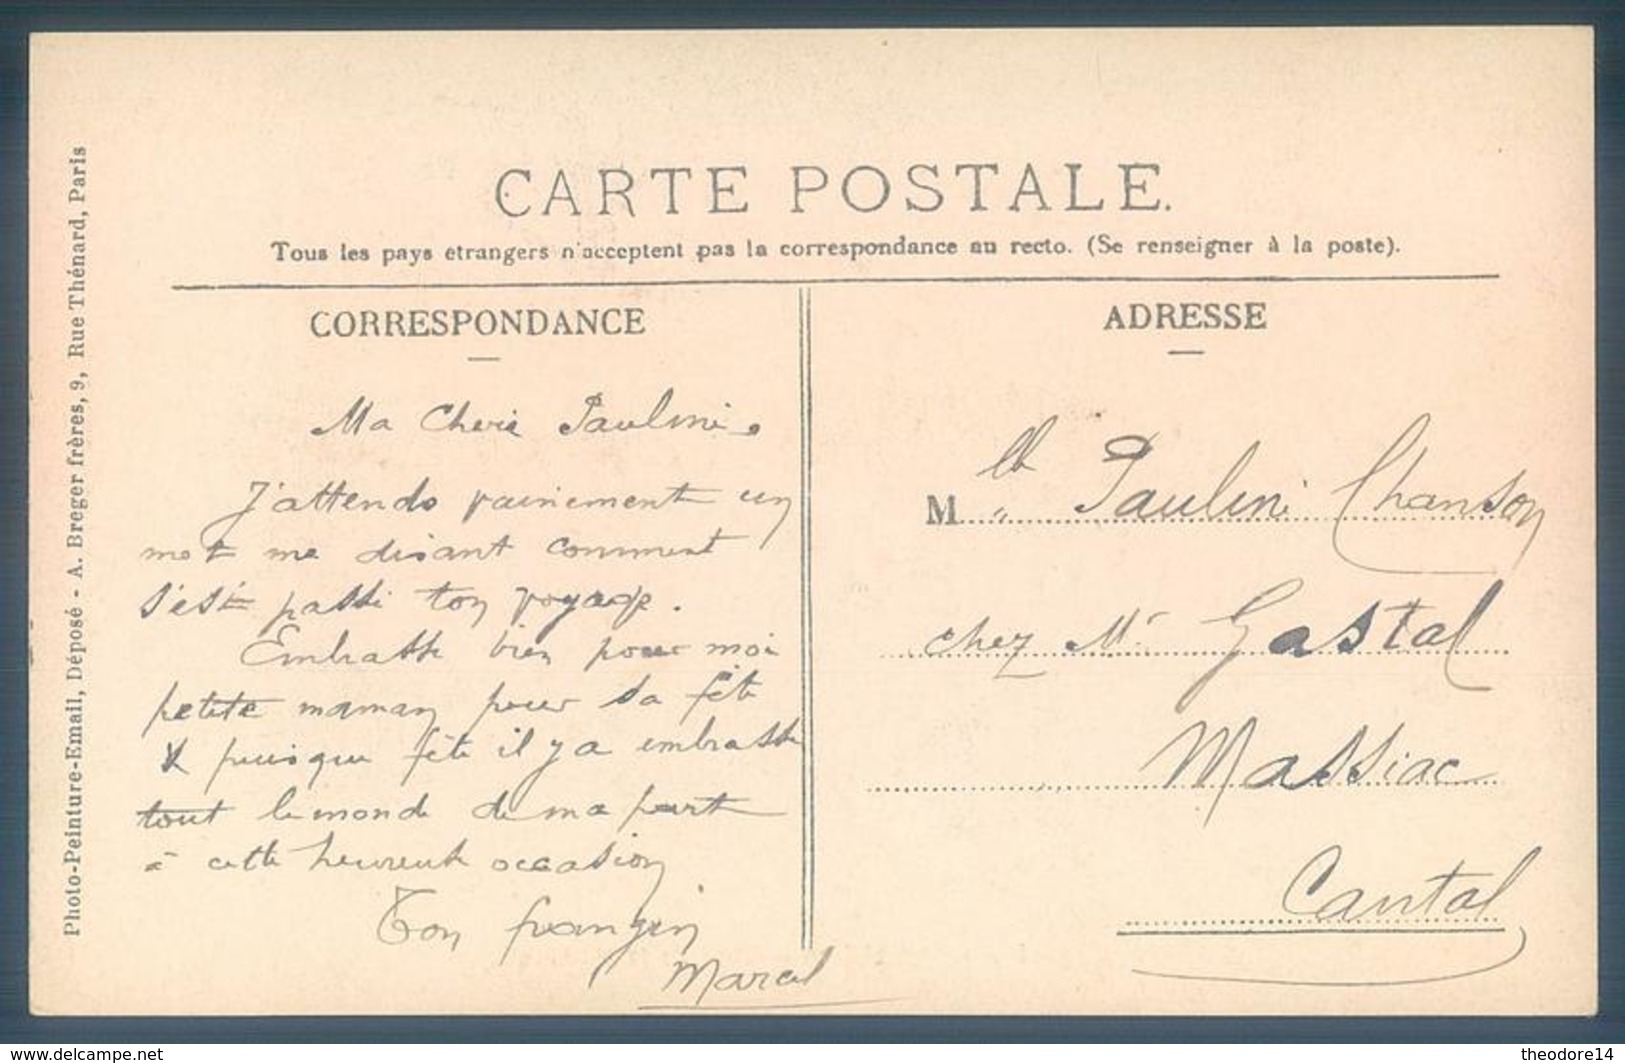 CARTE POSTALE.
Tous les pays etrangers n'acceptent pas la correspondance au recto. (Se renseigner à la poste).
CORRESPONDANCE
Ma Cherie Pauline.
J'attends vainement un
mot me disant comment
s'est passé ton voyage.
Embrasse bien pour moi
petite maman pour sa fête
& puisque fête il y a embrasse
tout le monde de ma part
à cette heureuse occasion
Ton frangin
Marcel
ADRESSE
Mlle Pauline Chanson
chez Mr Gastal
Massiac
Cantal
Photo-Peinture-Email, Déposé - A. Breger frères, 9, Rue Thénard, Paris
www.delcampe.net
theodore14